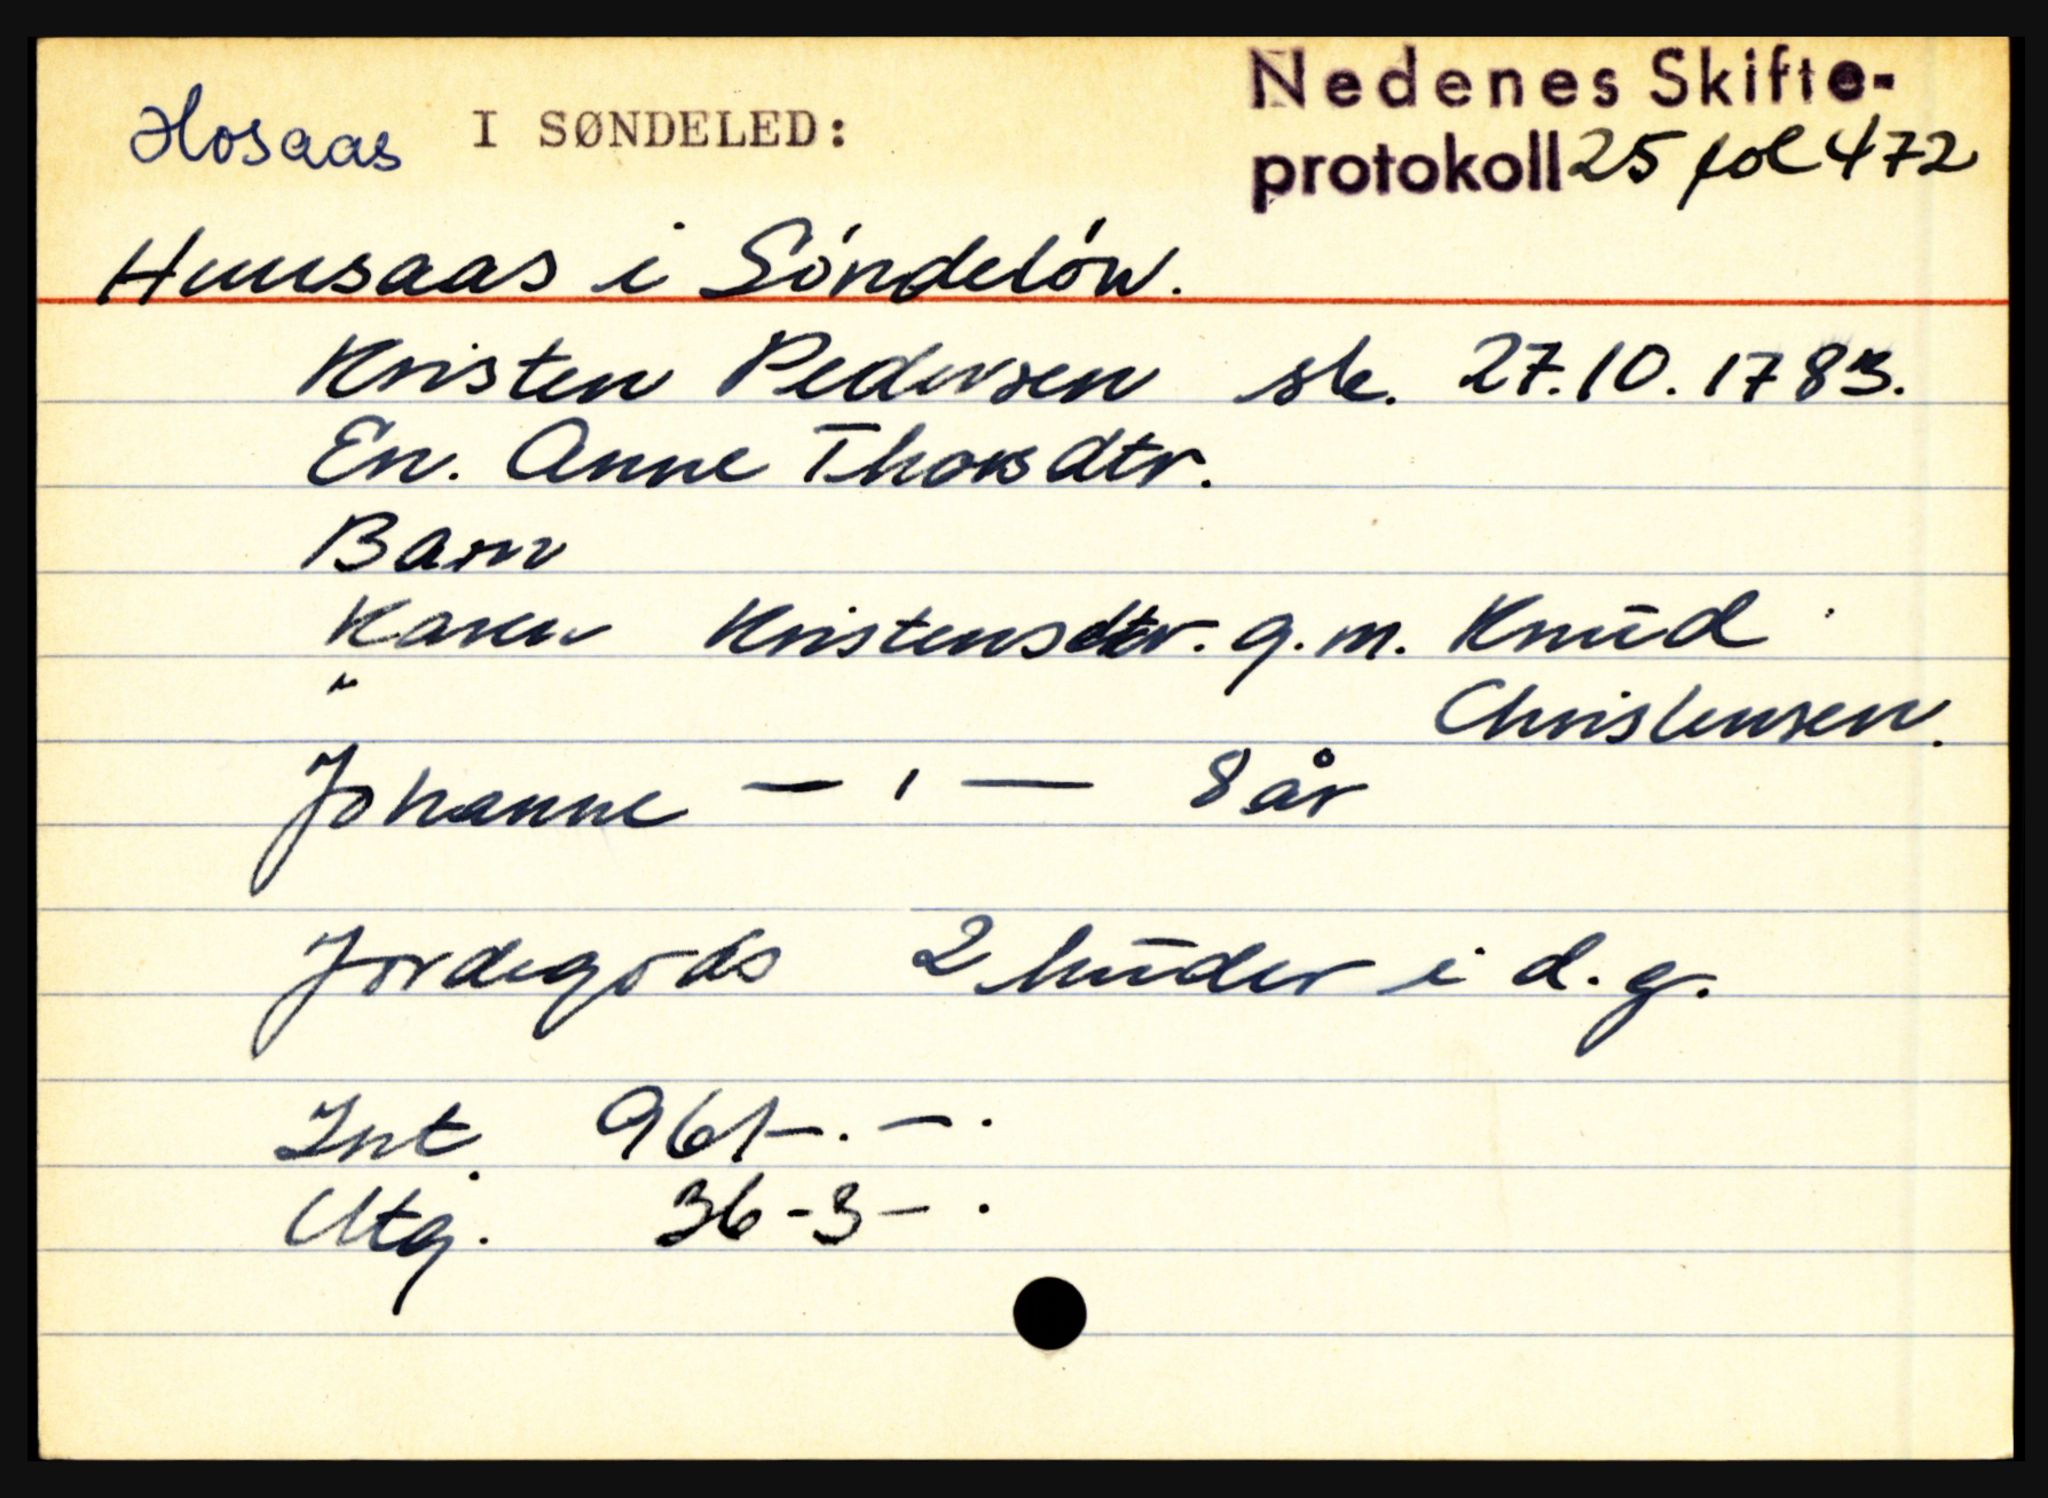 Hosaas I SØNDELED:
Nedenes Skifte-
protokoll 25 fol 472
Huusaas i Söndelöw.
Kristen Pedersen sk. 27.10.1783.
En. Anne Thorsdtr.
Barn
Karen Kristensdtr. g.m. Knud
" Christensen.
Johanne — " — 8 år
Jordegods 2 huder i d.g.
Int. 961-.-.
Utg. 36-3-.